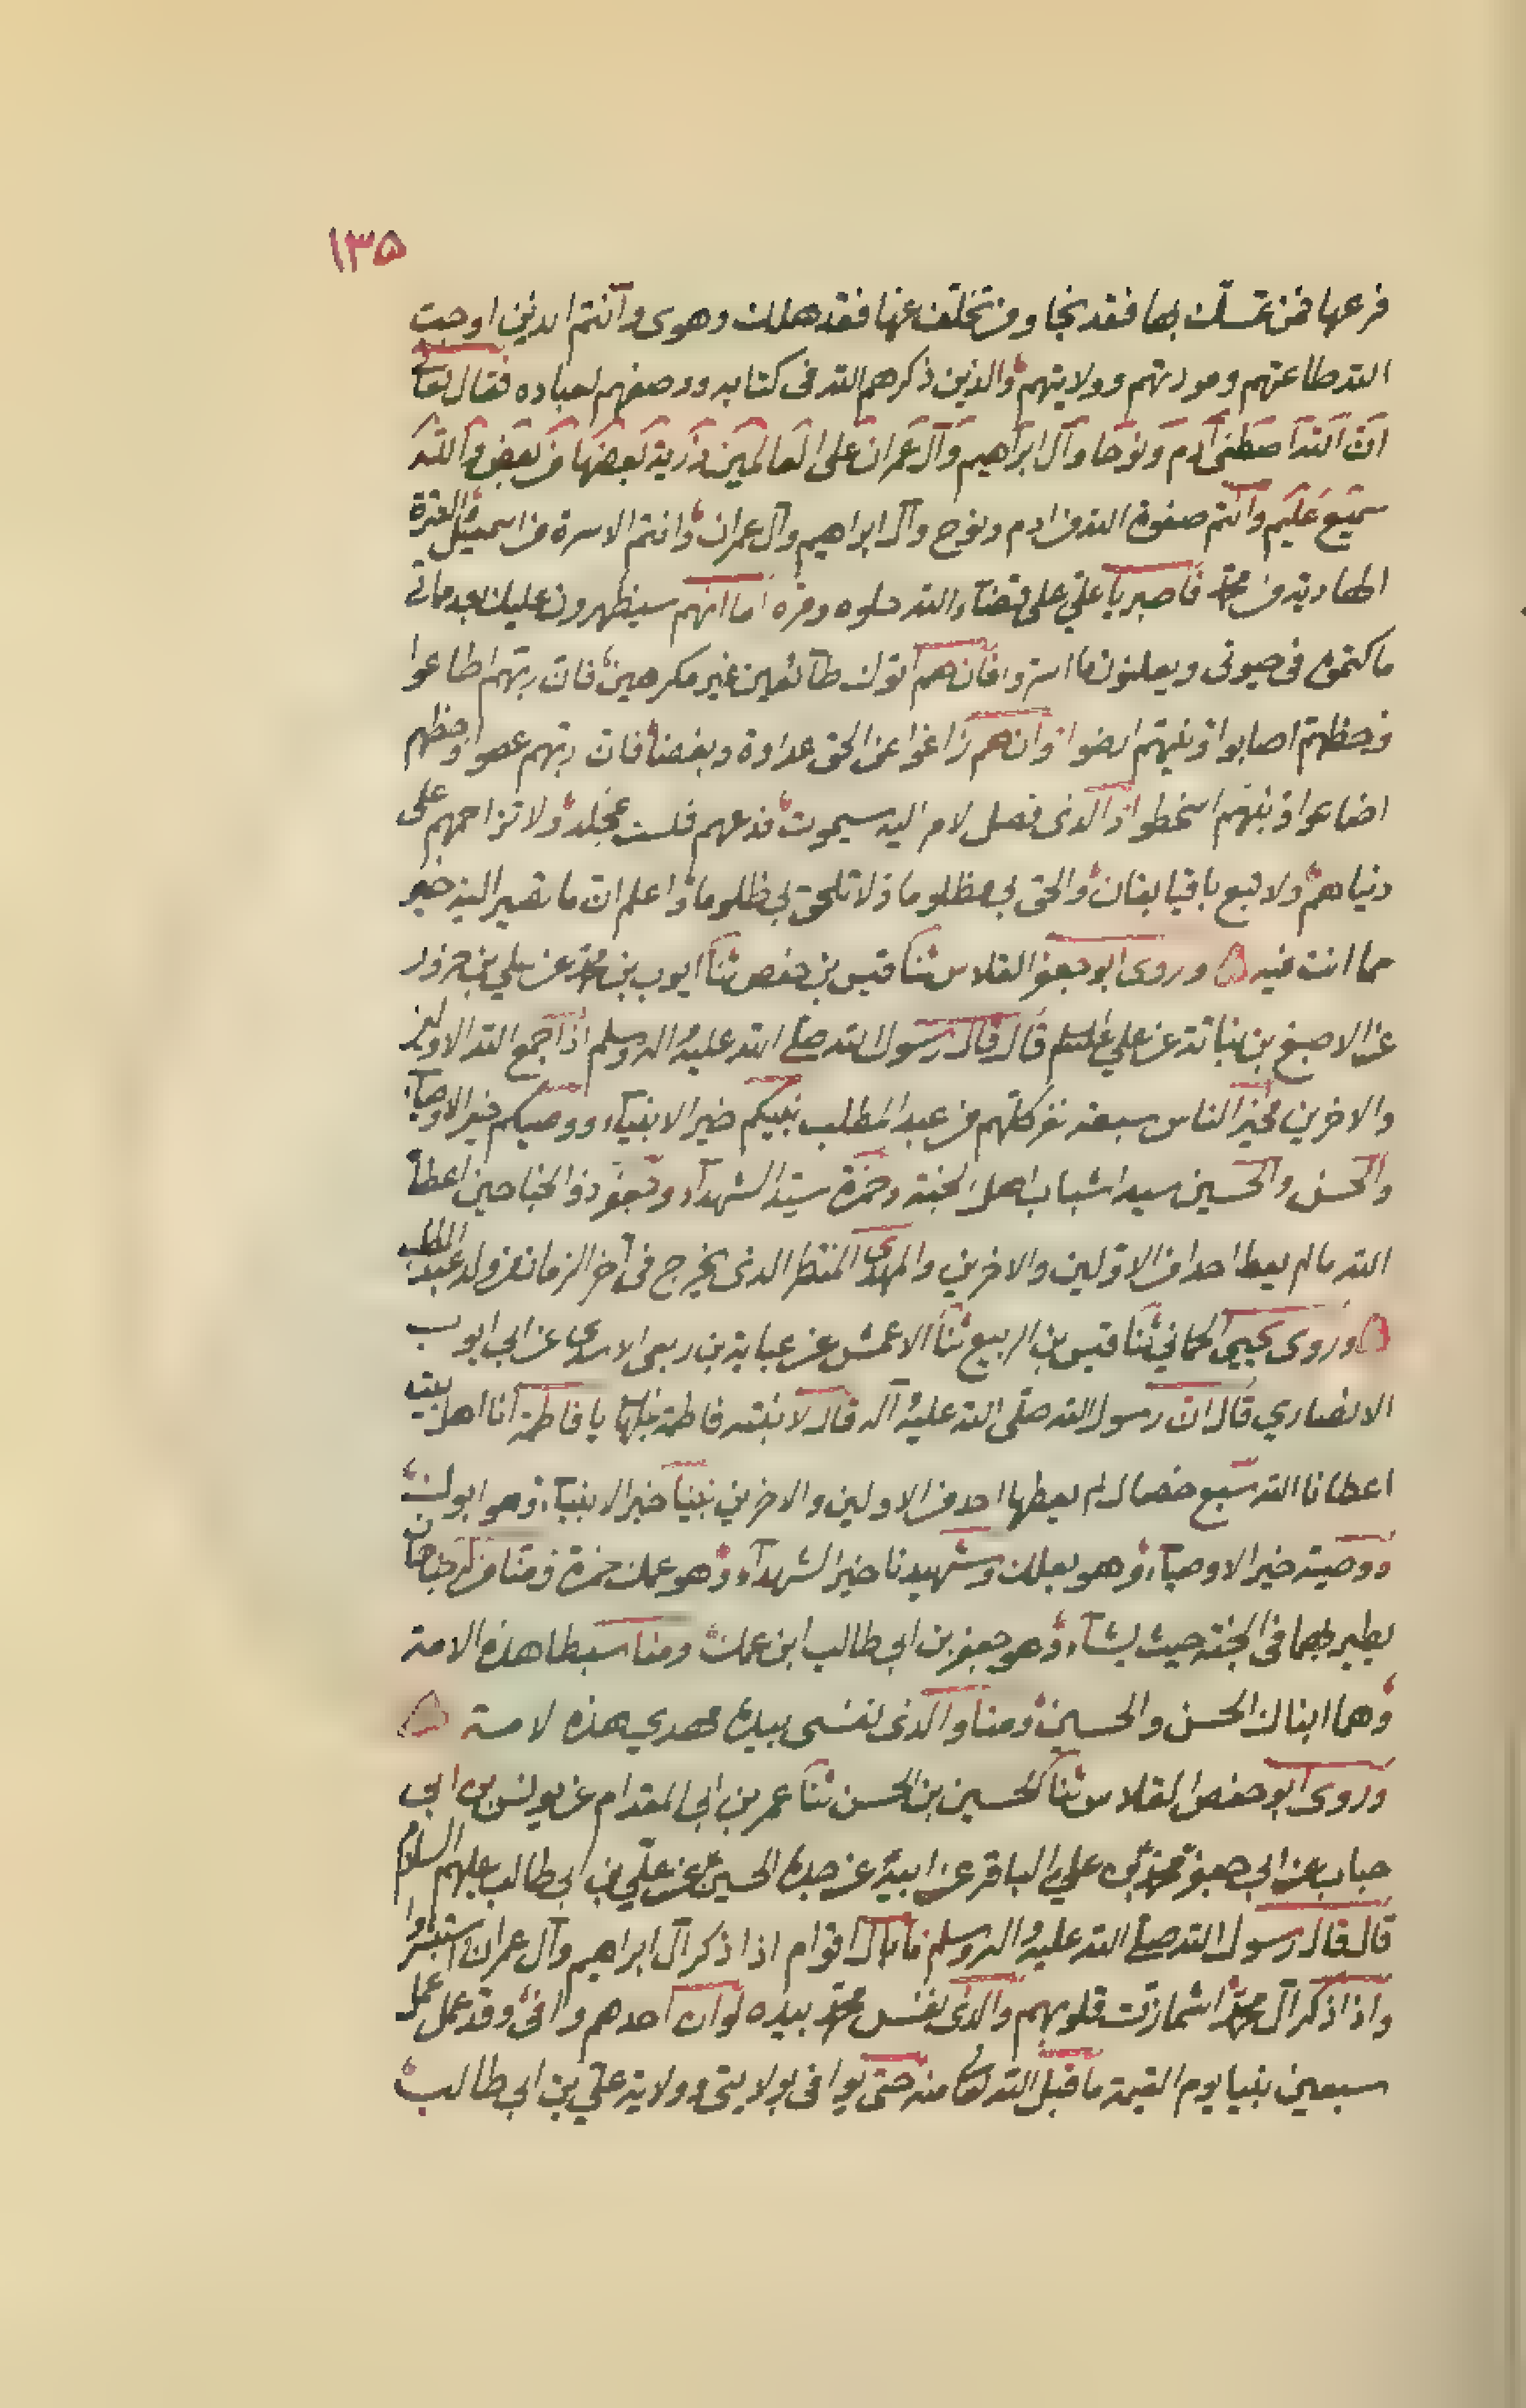 ١٣۵
فرعها فمن تمسّك بها فقد نجا ومن تخلّف عنها فقد هلك وهوى وأنتم الذين اوجبت
الله طاعتهم ومودتهم وولايتهم والذين ذكرهم الله فى كتابه ووصفهم لعباده فقال تعالى
انّ الله اصطفى آدم ونوحا وآل ابراهيم وآل عمران على العالمين ذرية بعضها من بعض والله
سميع عليم وأنتم صفوة الله من ادم ونوح وآل ابراهيم وآل عمران وانتم الاسرة من اسمعيل والعترة
الهادية من محمد فاصبر يا علي على قضاء الله حلوه ومره اما انهم سيظهرون عليك بعد مماتى
ما كتموه فى حيوتى ويعلنون ما اسرّوا فان هم اتوك طائعين غير مكرهين فان ربهم اطاعوا
وحظهم اصابوا ونبيهم ارضوا وان هم زاغوا عن الحق عداوة وبغضا فان ربهم عصوا وحظهم
اضاعوا ونبيهم اسخطوا والذى فصل لامر اليه سيموت فدعهم فلست بمخلد ولا تزاحمهم على
دنياهم ولا تبع باقيا بفان والحق بى مظلوما ولا تلحق بى ظلوما واعلم ان ما تصير اليه خير
مما انت فيه وروى ابو جعفر الفلاس ثنا قيس بن حفص ثنا ايوب بن محمد عن علي بن حزور
عن الاصبغ بن نباتة عن علي عليه السلم قال قال رسول الله صلى الله عليه واله وسلم اذا جمع الله الاولين
والاخرين فخير الناس سبعة نفر كلهم من عبد المطلب نبيكم خير الانبياء ووصيكم خير الاوصياء
والحسن والحسين سيدا شباب اهل الجنة وحمزة سيّد الشهداء وجعفر ذو الجناحين اعطاه
الله ما لم يعط احدا من الاوّلين والاخرين والمهدى المنتظر الذى يخرج فى آخر الزمان من ولد عبد المطلب
وروى يحيى الحمانى ثنا قيس بن الربيع ثنا الاعمش عن عباية بن ربعى الاسدى عن ابى ايوب
الانصاري قال انّ رسول الله صلّى الله عليه وآله قال لابنته فاطمة عليها يا فاطمة انا اهل بيت
اعطانا الله سبع خصال لم يعطها احد من الاولين والاخرين نبينا خير الانبياء وهو ابوك
ووصيّه خير الاوصياء وهو بعلك وشهيدنا خير الشهداء وهو عمك حمزة ومنّا من له جناحان
يطير بهما فى الجنة حيث يشاء وهو جعفر بن ابى طالب ابن عمك ومنا سبطا هذه الامة
وهما ابناك الحسن والحسين ومنا والذى نفسى بيده مهدي هذه لامة
وروى ابو حفص الفلاس ثنا الحسين بن الحسن ثنا عمر بن ابى المقدام عن يونس بن ابى
حباب عن ابى جعفر محمد بن علي الباقر عن ابيه عن جده الحسين عن علي بن ابى طالب عليهم السلام
قال قال رسول الله صلى الله عليه واله وسلم ما بال اقوام اذا ذكر آل ابراهيم وآل عمران استبشروا
واذا ذكر آل محمد اشمازت قلوبهم والذى نفس محمد بيده لو ان احدهم وافى وقد عمل عمل
سبعين نبيا يوم القيمة ما قبل الله تعالى منه حتى يوافى بولايتى وولاية علي بن ابى طالب